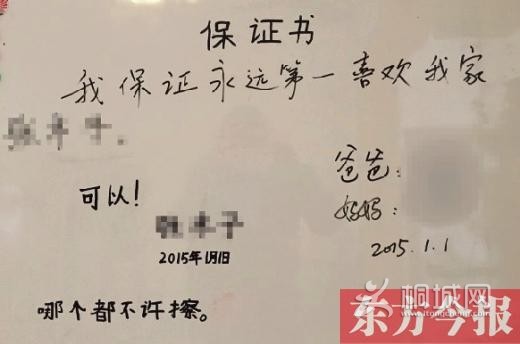 保证书
我保证永远第一喜欢我家
爸爸：
可以！
妈妈：
2015年1月1日
2015.1.1
哪个都不许擦。
桐城网
东方今报